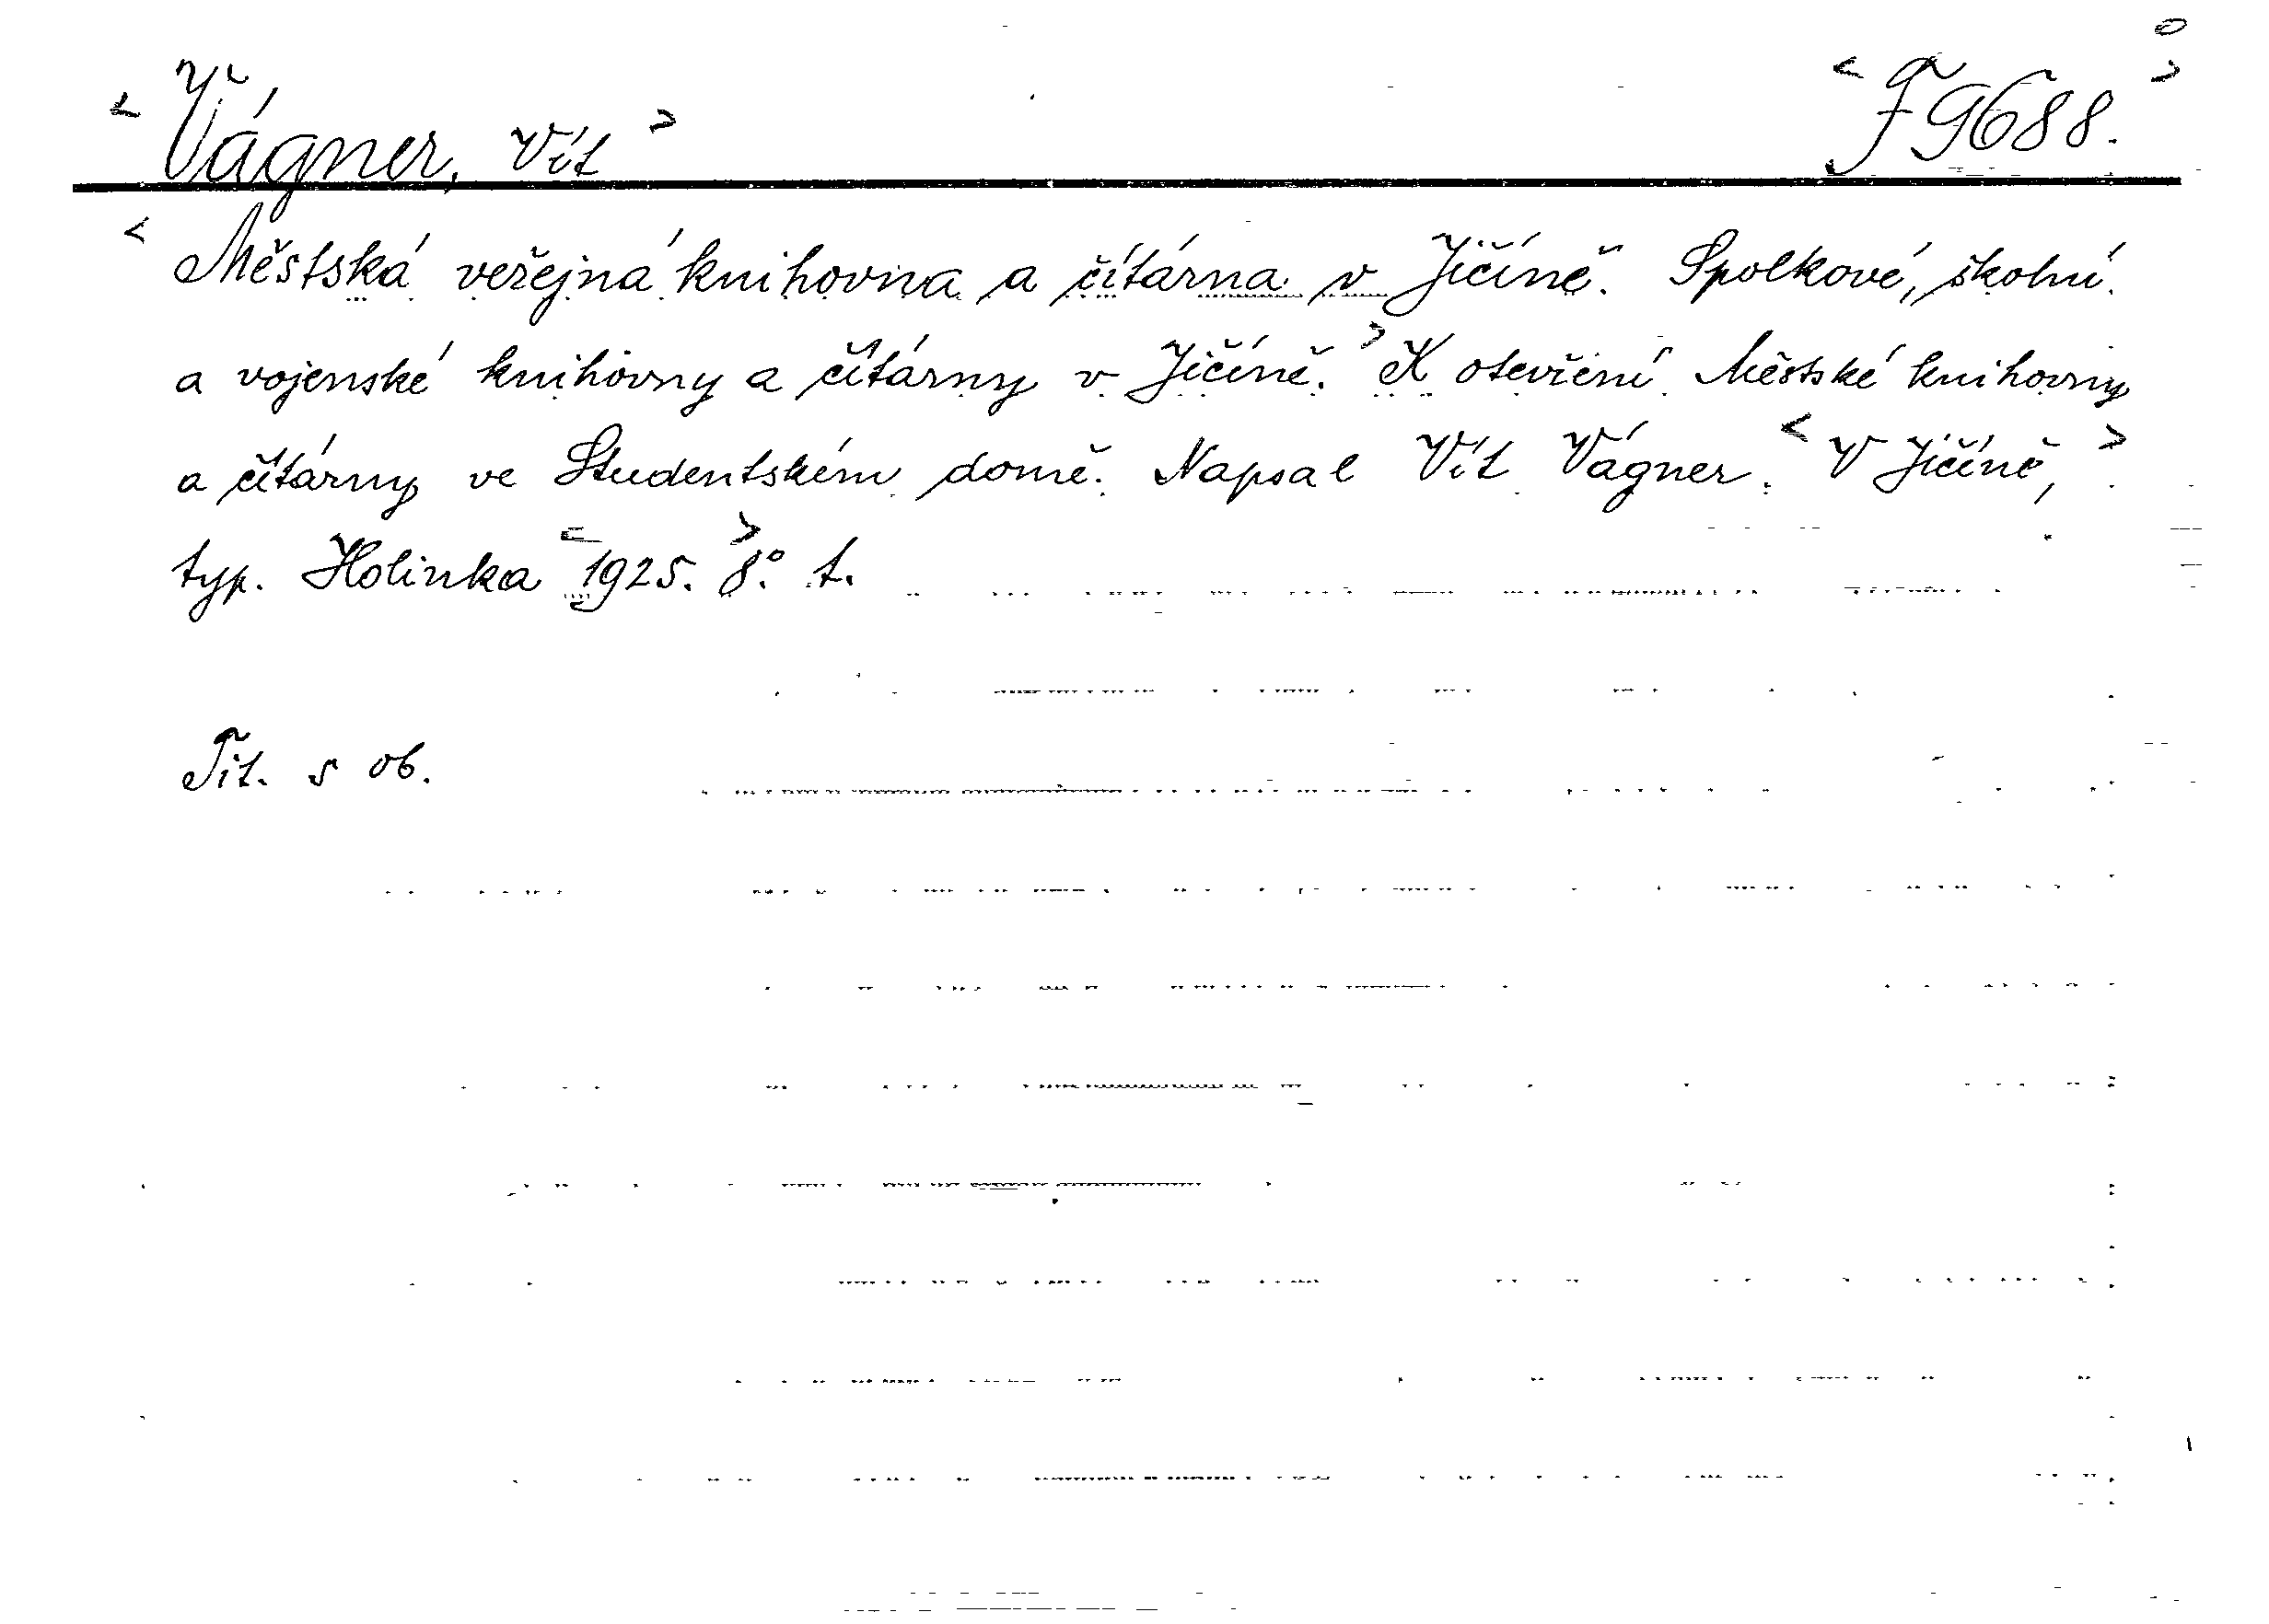 <Vágner, Vít> <F 9688.>
<Městská veřejná knihovna a čítárna v Jičíně. Spolkové, školní
a vojenské knihovny a čítárny v Jičíně.> K otevření Městské knihovny
a čítárny ve Studentském domě. Napsal Vít Vágner. <V Jičíně,>
typ. Holinka <1925.> 8.° t.
Tit. s ob.